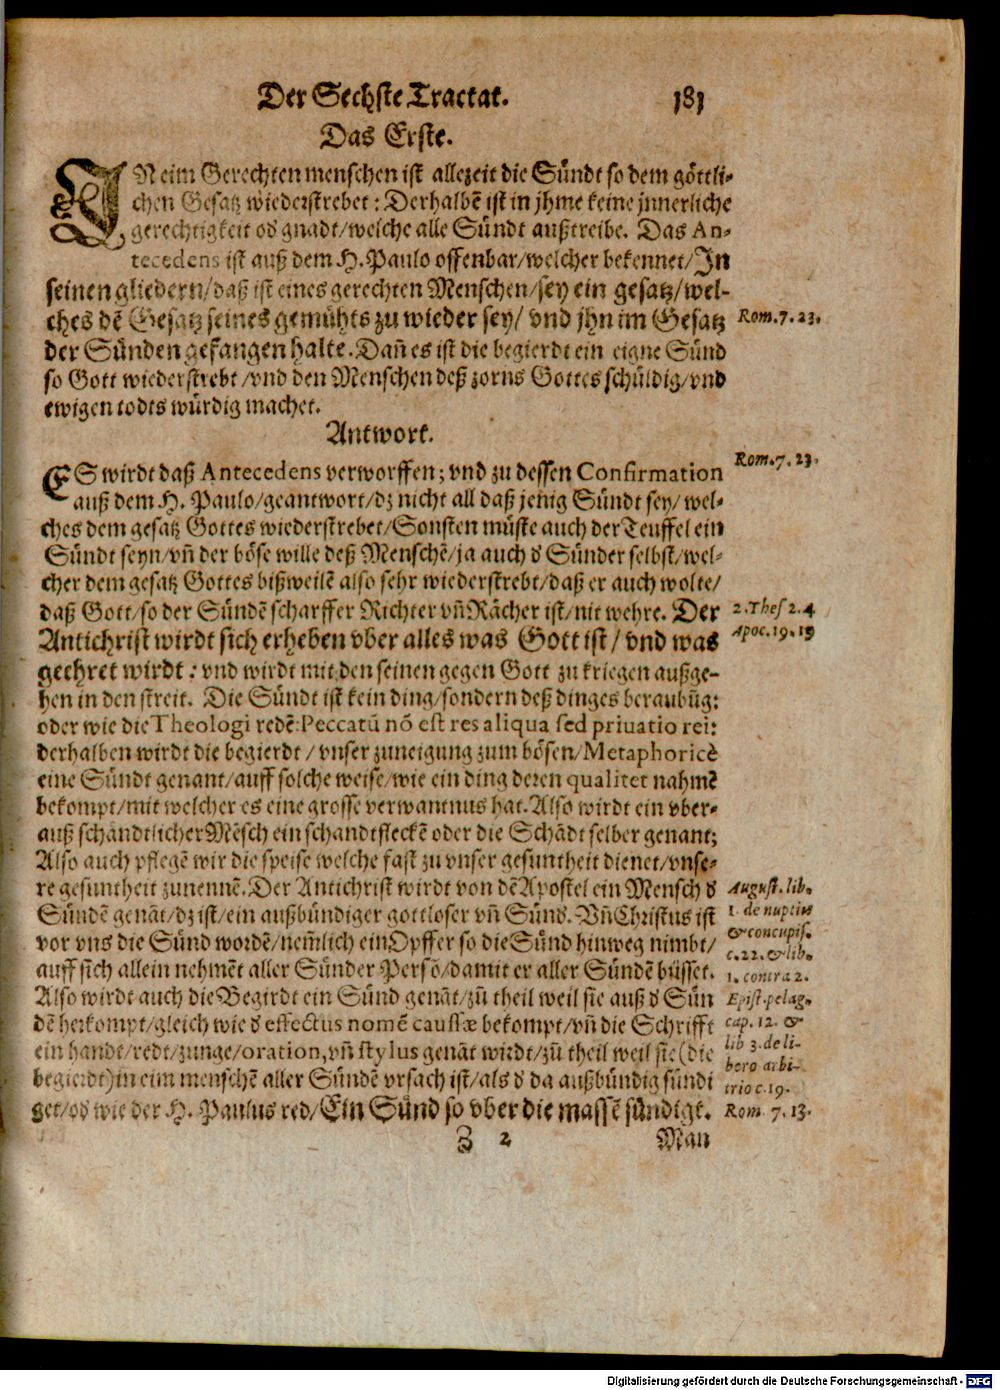 Der Sechste Tractat. 181
Das Erste.
IN eim Gerechten menschen ist allezeit die Sündt so dem göttli-
chen Gesatz wiederstrebet: Derhalbē ist in jhme keine jnnerliche
gerechtigkeit od gnadt/welche alle Sündt außtreibe. Das An-
tecedens ist auß dem H. Paulo offenbar/welcher bekennet/In
seinen gliedern/daß ist eines gerechten Menschen/sey ein gesatz/wel-
ches dē Gesatz seines gemühts zu wieder sey/ vnd jhn im Gesatz Rom. 7. 23.
der Sünden gefangen halte. Dañ es ist die begierdt ein eigne Sünd
so Gott wiederstrebt/vnd den Menschen deß zorns Gottes schüldig/vnd
ewigen todts würdig machet.
Antwort.
ES wirdt daß Antecedens verworffen; vnd zu dessen Confirmation Rom. 7. 23.
auß dem H. Paulo/geantwort/dz nicht all daß jenig Sündt sey/ wel-
ches dem gesatz Gottes wiederstrebet/Sonsten müste auch der Teuffel ein
Sündt seyn/vñ der böse wille deß Menschē/ja auch d Sünder selbst/wel-
cher dem gesatz Gottes bißweilē also sehr wiederstrebt/daß er auch wolte/
daß Gott/so der Sündē scharffer Richter vñ Rächer ist/nit wehre. Der 2. Thes 2. 4
Antichrist wirdt sich erheben vber alles was Gott ist/ vnd was Apoc. 19. 19
geehret wirdt: vnd wirdt mit den seinen gegen Gott zu kriegen außge-
hen in den streit. Die Sündt ist kein ding/sondern deß dinges beraubūg:
oder wie die Theologi redē: Peccatū nō est res aliqua sed priuatio rei:
derhalben wirdt die begierdt/vnser zuneigung zum bösen/Metaphoricè
eine Sündt genant/auff solche weise/wie ein ding deren qualitet nahmē
bekompt/mit welcher es eine grosse verwantnus hat. Also wirdt ein vber-
auß schändtlicher Mēsch ein schandtfleckē oder die Schādt selber genant;
Also auch pflegē wir die speise welche fast zu vnser gesuntheit dienet/vnse-
re gesuntheit zunennē. Der Antichrist wirdt von dē Apostel ein Mensch d August. lib.
Sündē genāt/dz ist/ein außbündiger gottloser vñ Sünd. Vñ Christus ist 1. de nuptiis
vor vns die Sünd wordē/nemlich ein Opffer so die Sünd hinweg nimbt/ & concupis.
auff sich allein nehmēt aller Sünder Persō/damit er aller Sündē büsset. c. 22. & lib.
1. contra 2.
Also wirdt auch die Begirdt ein Sünd genāt/zū theil weil sie auß d Sün Epist. pelag.
dē herkompt/gleich wie d effectus nomē caussæ bekompt/vñ die Schrifft cap. 12. &
ein handt/redt/zunge/oration, vñ stylus genāt wirdt/zū theil weil sie (die lib 3. de li-
begierdt) in eim menschē aller Sündē vrsach ist/als d da außbündig sündi bero arbi-
trio c. 19.
get/od wie der H. Paulus red/Ein Sünd so vber die massē sündigt. Rom 7. 13.
Z 2 Man
Digitalisierung gefördert durch die Deutsche Forschungsgemeinschaft - DFG